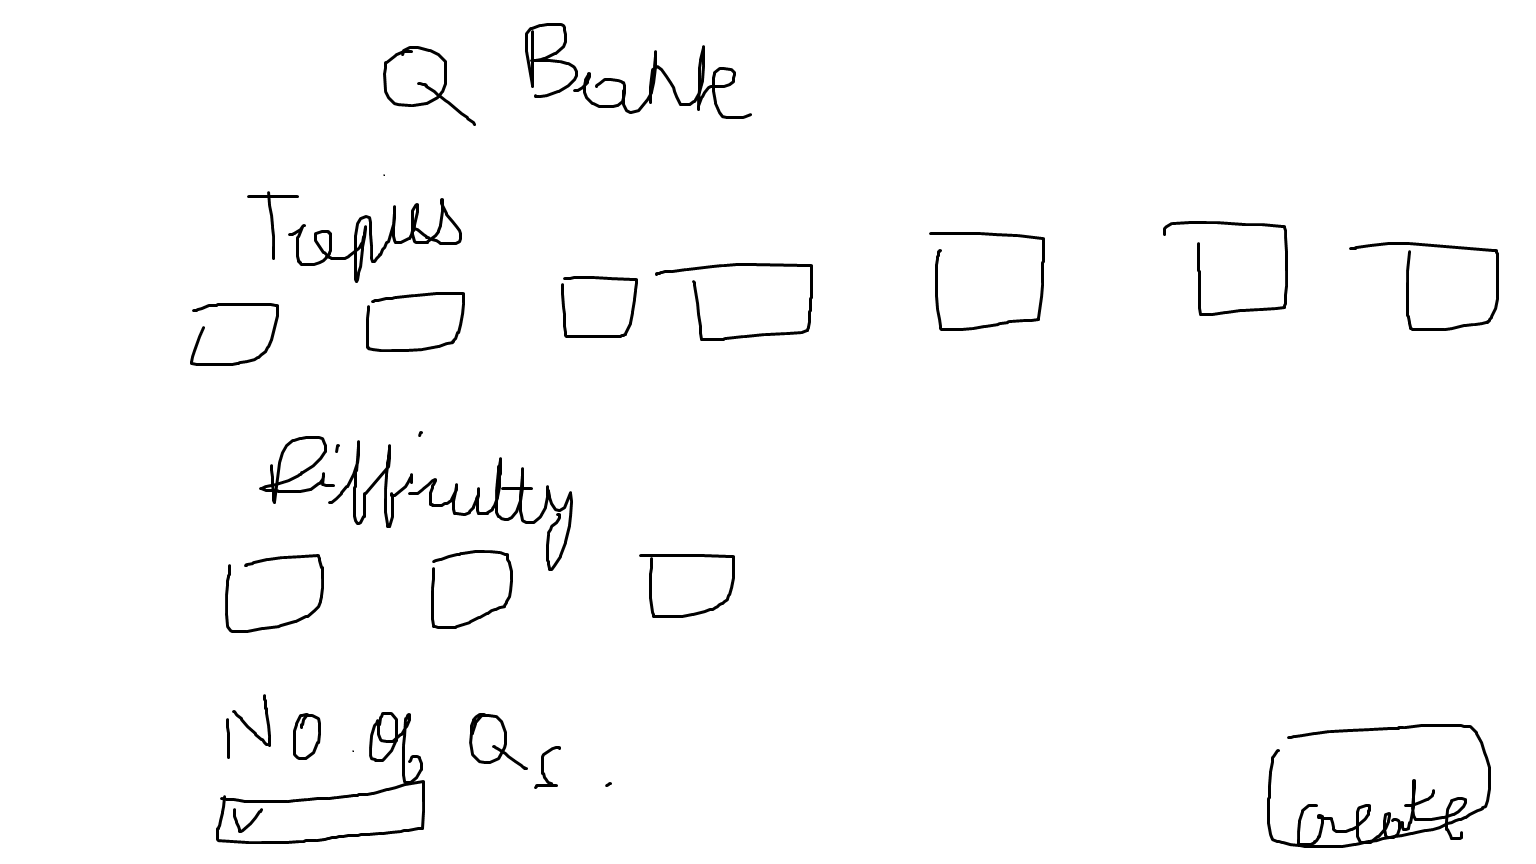 Q Bank
Topics
Difficulty
No of Qs.
create